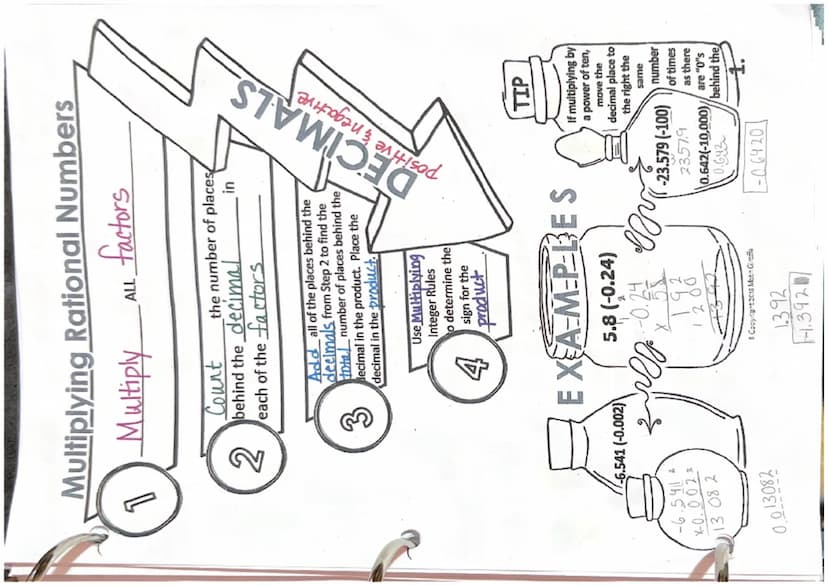 Multiplying Rational Numbers
1
Multiply ALL factors
2
Count the number of places
behind the decimal in
each of the factors
3
Add all of the places behind the
decimals from Step 2 to find the
total number of places behind the
decimal in the product. Place the
decimal in the product.
4
Use Multiplying
Integer Rules
to determine the
sign for the
product
DECIMALS
positive & negative
EXAMPLES
-6.541 (-0.002)
-6.541
x-0.002
13082
0.013082
5.8 (-0.24)
-0.24
x 5.8
192
1200
1392
1.392
-1.392
TIP
If multiplying by
a power of ten,
move the
decimal place to
the right the
same
number
of times
as there
are "0"s
behind the
1.
-23.579 (-100)
2357.9
0.642(-10,000)
0.642
-6420